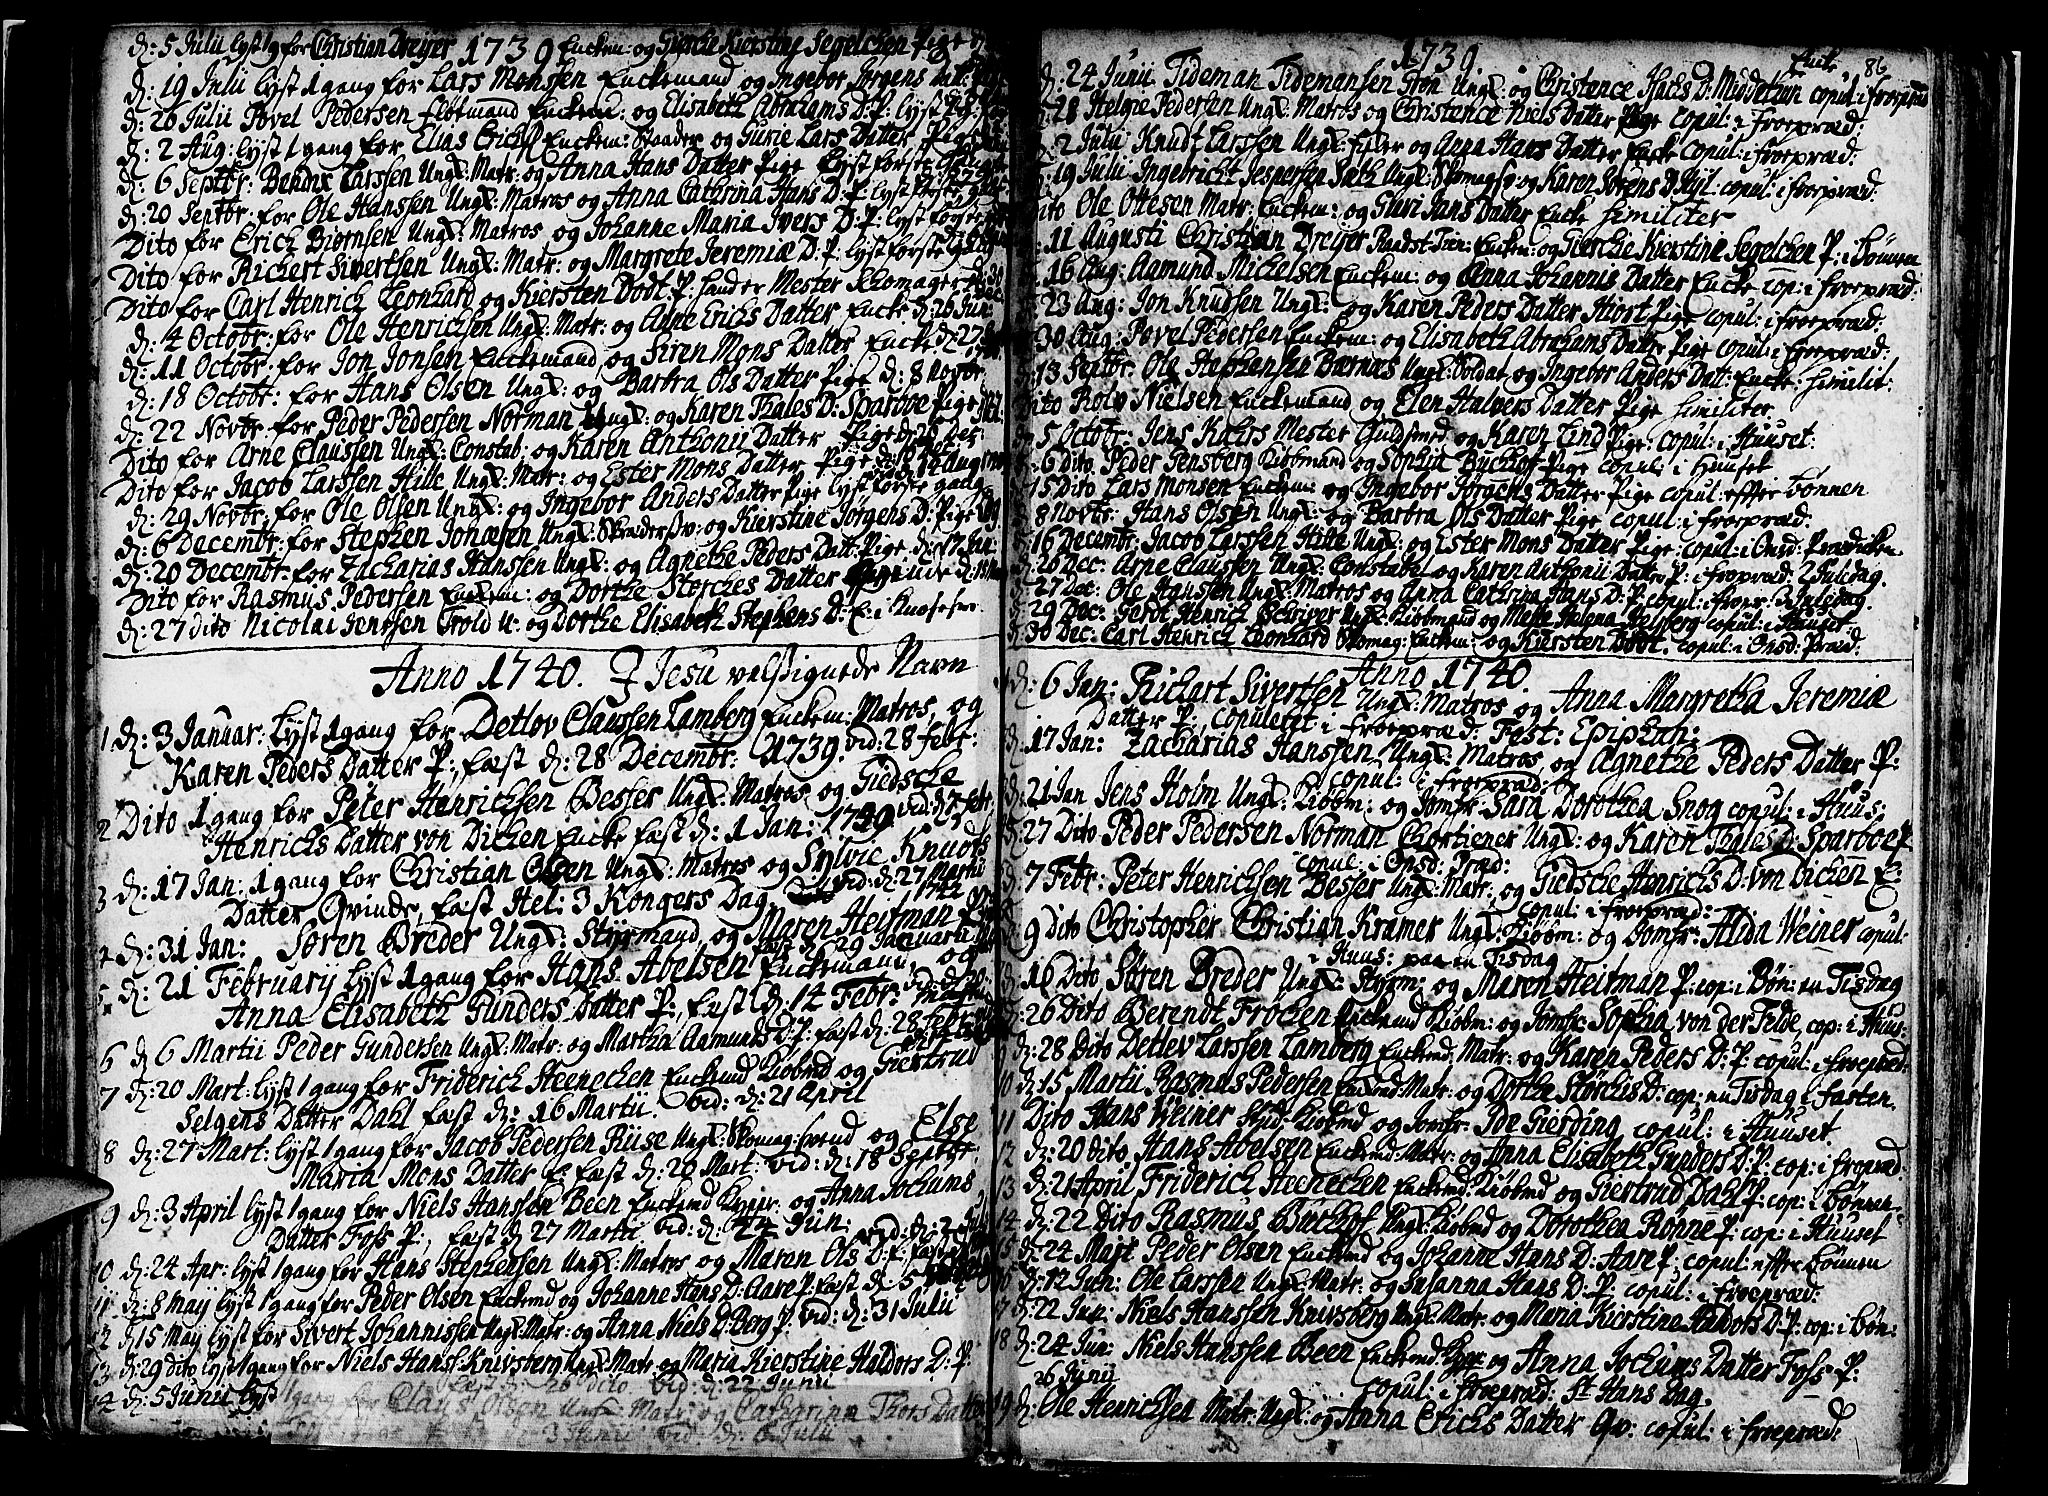 1739
d: 5 Julii lyst 1 g for Christian Dreyer Enckem: og Giesche Kierstine Segelcken Pige
d: 19 Julii lyst 1 gang for Lars Monsen Enckemand og Ingebor Jørgens Datt:
d: 26 Julii Povel Pedersen Enckem: og Elisabeth Abrahams D: P: lyst
d: 2 Aug: lyst 1 gang for Elias Erichs Enckem: og Gurie Lars Datter P:
d: 6 Septbr: Bendix Larssen Ungk: Matr: og Anna Hans Datter Pige lyst første gang
d: 20 Septbr: for Ole Hanssen Ungk: Matros og Anna Cathrina Hans D: P: lyst første
Dito for Erich Biørnsen Ungk: Matros og Johanne Maria Ivers D: P: lyst første
Dito for Richert Sivertsen Ungk: Matr: og Margrete Jeremiæ D: P: lyst første gang
Dito for Carl Henrich Leonhard og Kiersten Dodt P: Mester Skomager
d: 4 Octobr: for Ole Henrichsen Ungk: Matr: og Anne Erichs Datter Encke d: 26 Jun:
d: 11 Octobr: for Jon Jonsen Enckemand og Siren Mons Datter Encke d: 27
d: 18 Octobr: for Hans Olsen Ungk: og Barbra Ols Datter Pige d: 8 Novbr:
d: 22 Novbr: for Peder Pedersen Norman Ungk: og Karen Thales D: Sparboe Pige
Dito for Arne Claussen Ungk: Constab: og Karen Anthonii Datter Pige d: 26 Dec:
Dito for Jacob Larssen Hille Ungk: Matr: og Ester Mons Datter Pige d: 16
d: 29 Novbr: for Ole Olsen Ungk: og Ingebor Anders Datter Pige lyst første gang
d: 6 Decembr: for Stephen Jonæsen Ungk: og Kierstine Jørgens D: Pige
d: 20 Decembr: for Zacharias Hanssen Ungk: og Agnethe Peders Datt: Pige d: 17 Jan:
Dito for Rasmus Pedersen Enckem: og Dorthe Storches Datter
d: 27 dito Nicolai Jenssen Trold U: og Dorthe Elisabeth Stephens D: E:
Anno 1740. I Jesu velsignede Navn
1 d: 3 Januar: lyst 1 gang for Detlov Claussen Lamberg Enckem: Matros, og
Karen Peders Datter P:, fæst d: 28 Decembr: 1739. vid: 28 Febr:
2 Dito 1 gang for Peter Henrichsen Besser Ungk: Matros og Giedsche
Henrichs Datter von Dicken Encke fæst d: 1 Jan: vid: d: 7 febr:
3 d: 17 Jan: 1 gang for Christian Olsen Ungk: Matros og Sylvie Knuds
Datter Qvinde, fæst Hel: 3 Kongers Dag vid: d: 27 Martii
4 d: 31 Jan: Søren Breder Ungk: Styrmand og Maren Heitman
fæst d: 29 Januarii
5 d: 21 February lyst 1 gang for Hans Abelsen Enckemand, og
Anna Elisabeth Gunders Datter P:, fæst d: 14 Febr: vid: d: 20
6 d: 6 Martii Peder Gundersen Ungk: Matr: og Martha Aamunds D: P: fæst d: 28 febr:
7 d: 20 Mart: lyst 1 gang for Friderich Steenecken Enckmd Kiøbmd og Giertrud
Selgens Datter Dahl fæst d: 16 Martii. vid: d: 21 April
8 d: 27 Mart: lyst 1 gang for Jacob Pedersen Riise Ungk: Skomag: svend og Else
Maria Mons Datter E: fæst d: 20 Mart: vid: d: 18 Septbr
9 d: 3 April lyst 1 gang for Niels Hanssen Been Enckemd og Anna Jochums
Datter Foss P:, fæst d: 27 Martii vid: d: 24 Jun:
10 d: 24 Apr: lyst 1 gang for Hans Stephensen Ungk: Matros og Maren Ols D: P:
11 d: 8 May lyst 1 gang for Peder Olsen Enckemd og Johanne Hans D: Aare P: fæst d: 5
12 d: 15 May lyst for Sivert Johannissen Ungk: Matr: og Anna Niels D: Berg P. vid: d: 31 Julii
13 d: 29 dito lyst 1 gang for Niels Hanss: Knivsberg Ungk: Matr: og Maria Kierstine Haldors D: P:
fæst d: 26 dito. vid: d: 22 Junii
14 d: 5 Junii lyst 1 gang for Claus Olsen Ungk: Matr: og Catharina Thors Datter
vid: d: 6 Julii
1739
86
d: 24 Junii Tideman Tidemansen Ungk: og Christence Isacs D: Middelthun Encke copul: i froepræd
28 Helgie Pedersen Ungk: Matros og Christence Niels Datter Pige copul: i froepræd:
2 Julii Knudt Larssen Ungk: og Anna Hans Datter Encke copul: i froepræd:
19 Julii Ingebricht Jespersen Ungk: og Karen Sørens D: copul: i froepræd:
Dito Ole Ottesen Matr: Enckem: og Guri Jans Datter Encke similiter
11 Augusti Christian Dreyer Enckem: og Giesche Kierstine Segelcken P: i Bønnen
16 Aug: Aamund Michelsen Enckem: og Anna Johannis Datter Encke cop: i froepræd:
23 Aug: Jon Knudsen Ungk: og Karen Peders Datter Hiort Pige copul: i froepræd:
30 Aug: Povel Pedersen Enckem: og Elisabeth Abrahams Datter Pige copul: i froepræd:
13 Septbr: Ole Stephensen Ungk: Soldat og Ingebor Anders Datt: Encke: similit:
Dito Rolv Nielsen Enckemand og Elen Halvers Datter Pige similiter
5 Octobr: Jens Kahrs Mester Guldsmed og Karen Lind Pige: copul: i Huuset:
6 Dito Peder Jensberg Kiøbmand og Sophia Buchhof Pige copul: i Huuset
15 Dito Lars Monsen Enckem: og Ingebor Jørgens Datter Pige copul: effter Bønnen
8 Novbr: Hans Olsen Ungk: og Barbra Ols Datter Pige copul: i froepræd:
16 Decembr: Jacob Larssen Hille Ungk: og Ester Mons Datter Pige: copul: i Onsd: Prædicken
26 Dec: Arne Claussen Ungk: Constabel og Karen Anthonii Datter P: i froepræd: 2 Juledag.
27 Dec: Ole Hanssen Ungk: Matros og Anna Cathrina Hans D: P: copul: i froepr: 3 Juledag.
29 Dec: Gerdt Henrich Schriver Ungk: Kiøbmand og Mette Helena copul: i Huuset
30 Dec: Carl Henrich Leonhard Skomag: Enckem: og Kiirsten Dodt. copul: i Onsd: Præd:
Anno 1740.
d: 6 Jan: Richart Sivertsen Ungk: Matros og Anna Margretha Jeremiæ
Datter P: copuleret i froepræd: Fest: Epiphan:
17 Jan: Zacharias Hanssen Ungk: Matros og Agnethe Peders Datter P:
copul: i froepræd:
21 Jan Jens Holm Ungk: Kiøbm: og Jomfr: Sara Dorothea Snog copul: i Huus:
27 Dito Peder Pedersen Norman Ungk: og Karen Thales D: Sparboe P:
copul: i Onsd: Præd:
7 Febr: Peter Henrichsen Besser Ungk: Matr: og Giedsche Henrichs D: von Dicken E:
copul: i froepræd:
9 Dito Christopher Christian Kramer Ungk: Kiøbm: og Jomfr: Alida Weiner copul:
i Huus: paa en Tisdag
16 Dito Søren Breder Ungk: Styrm: og Maren Heitman P: cop: i Bøn: en Tisdag
26 Dito Berendt Frochen Enckemd Kiøbm: og Jomfr: Sophia von der Felde, cop: i Huus:
28 Dito Detlev Larssen Lamberg Enckemd: Matr: og Karen Peders D: P: copul: i froepræd:
10 d: 15 Martii Rasmus Pedersen Enckemd: Matr: og Dorthe Storchis D: cop: en Tisdag i Fasten.
11 Dito Hans Weiner Kiøbmd og Jomfr: Ide Gierding copul: i Huuset
12 d: 20 Dito Hans Abelsen Enckemd: Matr: og Anna Elisabeth Gunders D: P: cop: i froepræd:
13 d: 21 April Friderich Steenecken Enckemd: Kiøbmd og Giertrud Dahl P: cop: i Bønnen
14 d: 22 Dito Rasmus Buchhof Ungk: Kiøbmd og Dorothea Rønne P: cop: i Huuset
15 d: 24 Maji Peder Olsen Enckemd og Johanne Hans D: Aare P: copul: effter Bønnen
16 d: 12 Jun: Ole Larssen Ungk: Matr: og Susanna Hans D: P: copul: i froepræd:
17 d: 22 Jun: Niels Hanssen Knivsberg Ungk: Matr: og Maria Kierstine Haldors D: P: cop: i Bøn:
18 d: 24 Jun: Niels Hanssen Been Enckemd og Anna Jochums Datter Foss P:
copul: i froepræd: St Hans Dag.
26 Junij
19 d: Ole Henrichsen Matr: Ungk: og Anna Erichs Datter Qv: copul: i froepræd: